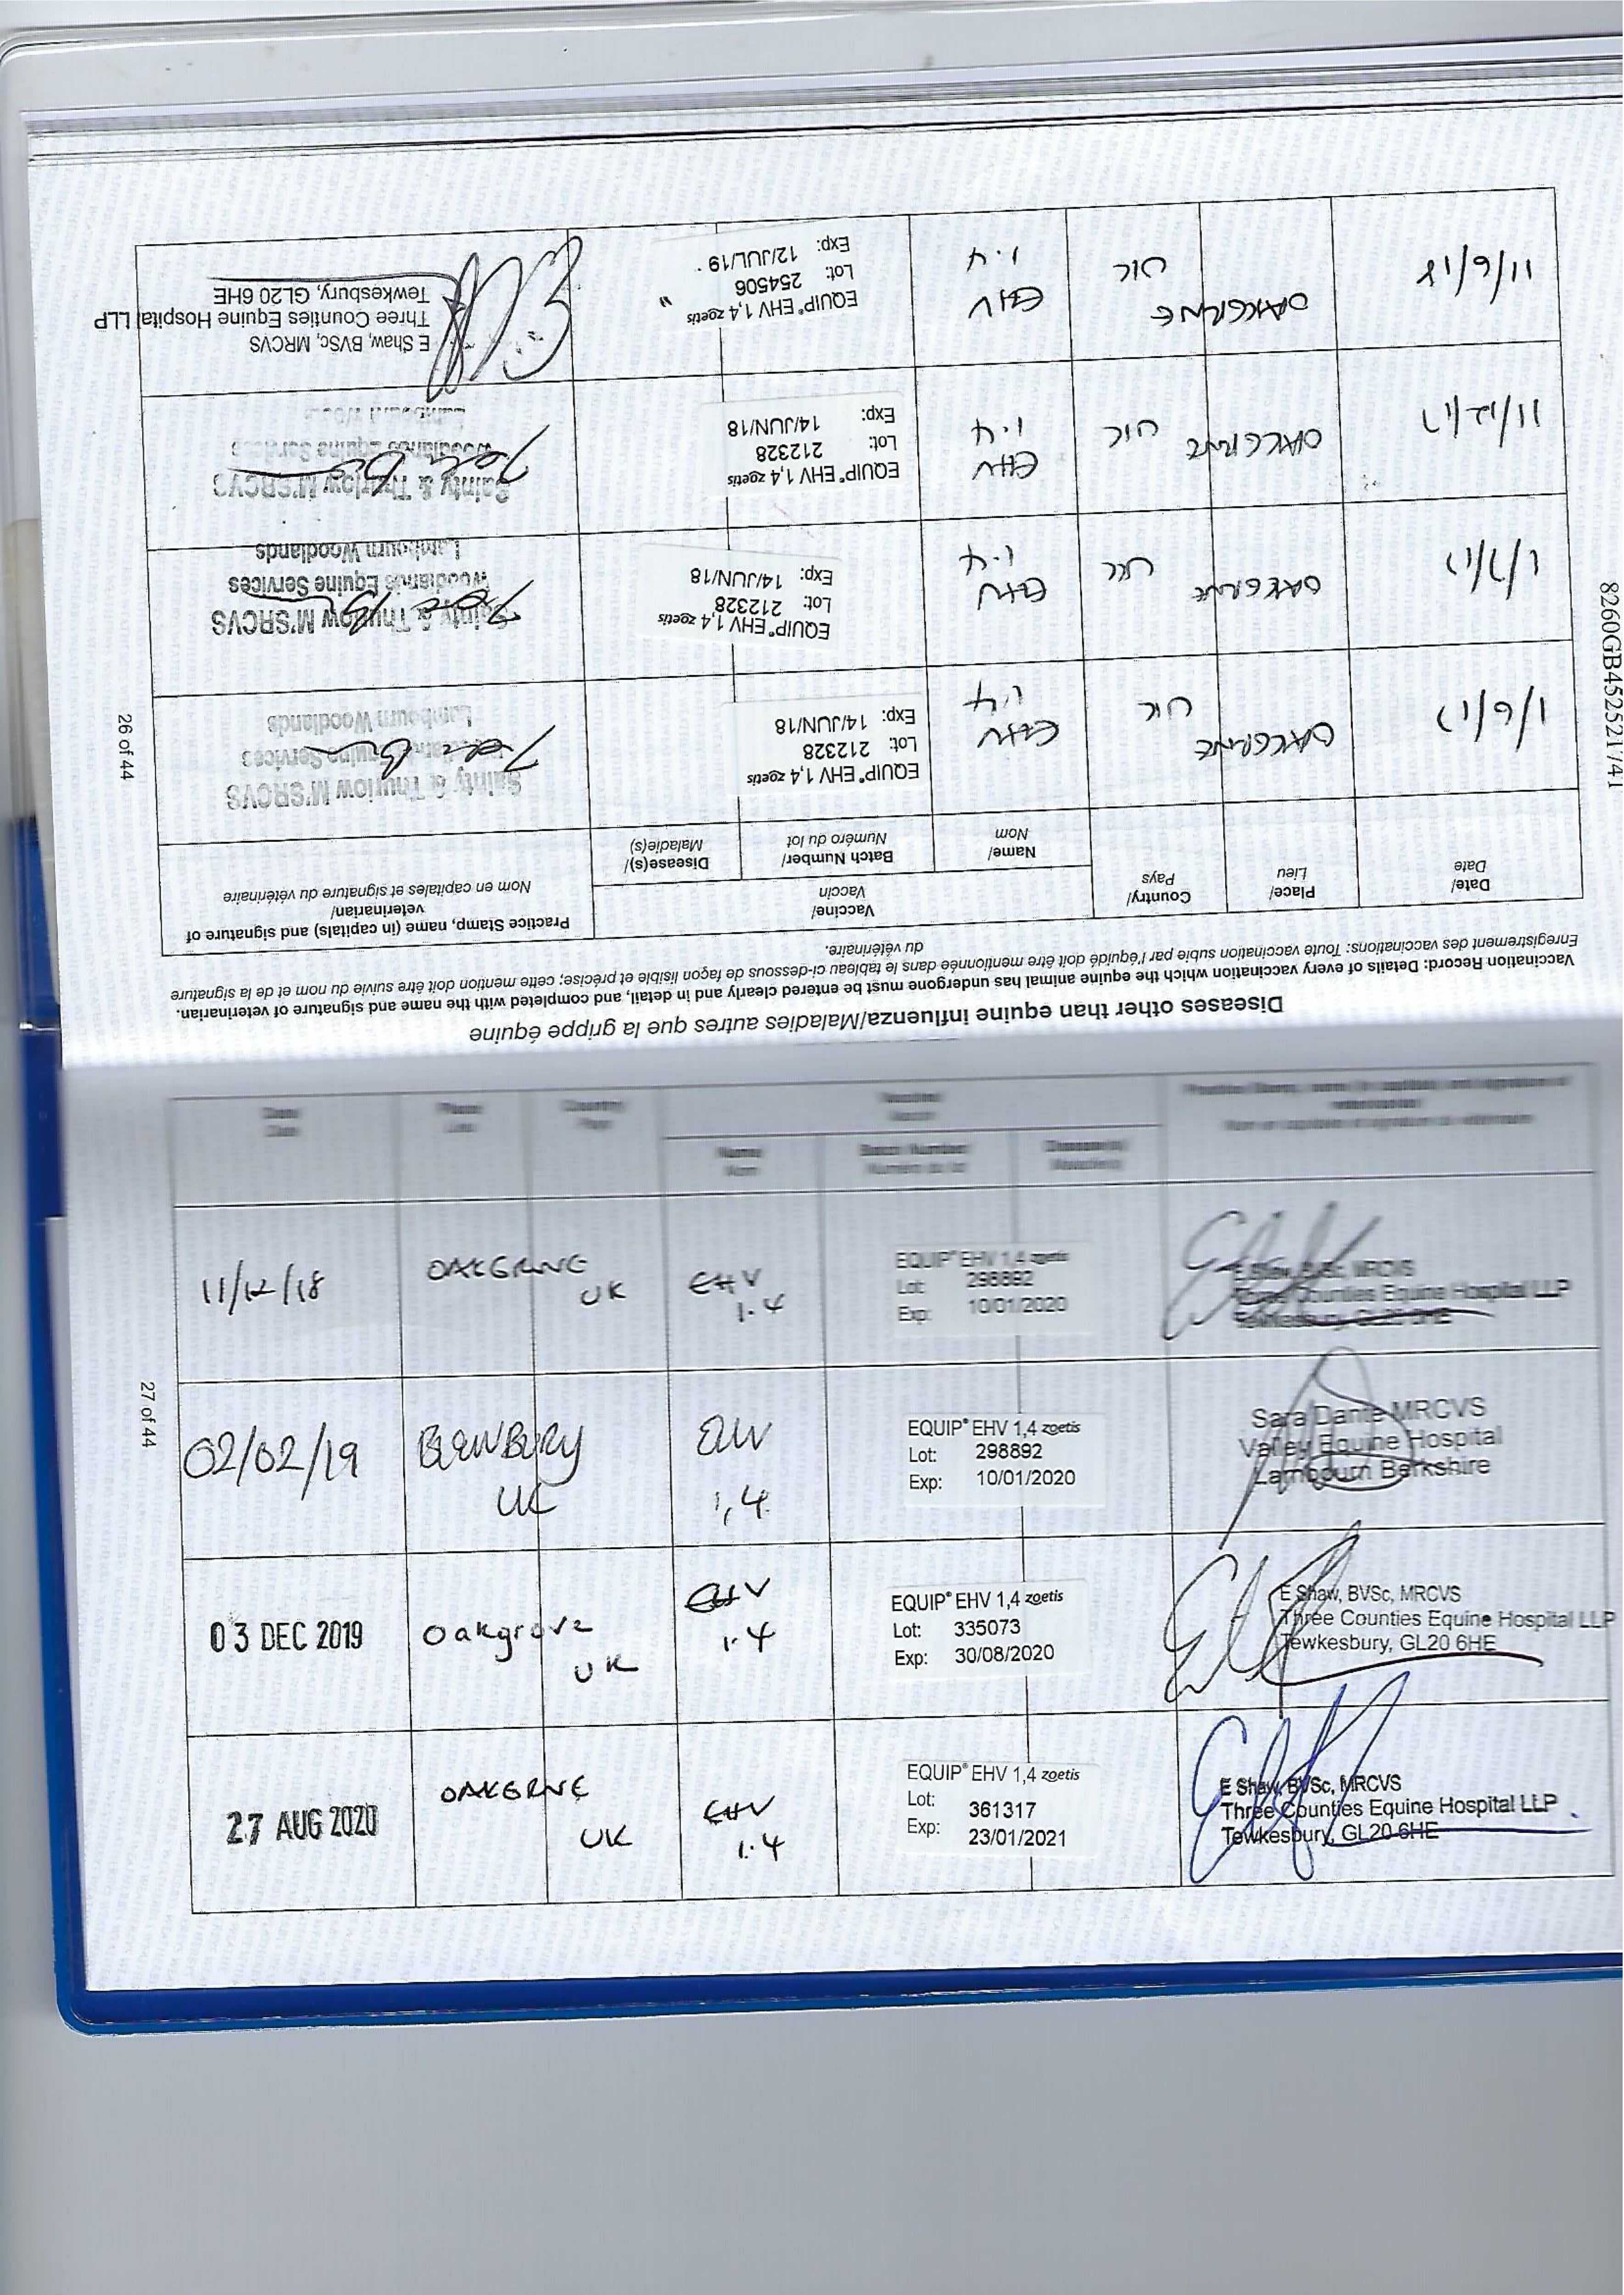 Diseases other than equine influenza/Maladies autres que la grippe équine
Vaccination Record: Details of every vaccination which the equine animal has undergone must be entered clearly and in detail, and completed with the name and signature of veterinarian.
Enregistrement des vaccinations: Toute vaccination subie par l'équidé doit être mentionnée dans le tableau ci-dessous de façon lisible et précise; cette mention doit être suivie du nom et de la signature
du vétérinaire.
Date/
Date
Place/
Lieu
Country/
Pays
Vaccine/
Vaccin
Name/
Nom
Batch Number/
Numéro du lot
Disease(s)/
Maladie(s)
Practice Stamp, name (in capitals) and signature of
veterinarian/
Nom en capitales et signature du vétérinaire
1/6/17
OAKGROVE
UK
EHV
1.4
EQUIP® EHV 1,4 zoetis
Lot: 212328
Exp: 14/JUN/18
Sainty & Thurlow M'SRCVS
Equine Services
Lambourn Woodlands
1/7/17
OAKGROVE
UK
EHV
1.4
EQUIP® EHV 1,4 zoetis
Lot: 212328
Exp: 14/JUN/18
Sainty & Thurlow M'SRCVS
Woodlands Equine Services
Lambourn Woodlands
11/12/17
OAKGROVE
UK
EHV
1.4
EQUIP® EHV 1,4 zoetis
Lot: 212328
Exp: 14/JUN/18
Sainty & Thurlow M'SRCVS
Woodlands Equine Services
11/6/18
OAKGROVE
UK
EHV
1.4
EQUIP® EHV 1,4 zoetis
Lot: 254506
Exp: 12/JUL/19
E Shaw, BVSc, MRCVS
Three Counties Equine Hospital LLP
Tewkesbury, GL20 6HE
26 of 44
8260GB452521741
Date
Date
Place
Lieu
Country
Pays
Vaccine
Vaccin
Name
Nom
Batch Number
Numéro du lot
Disease(s)
Maladie(s)
11/12/18
OAKGROVE
UK
EHV
1.4
EQUIP® EHV 1,4 zoetis
Lot: 298892
Exp: 10/01/2020
E Shaw, BVSc, MRCVS
Three Counties Equine Hospital LLP
Tewkesbury, GL20 6HE
02/02/19
BLEWBURY
UK
EHV
1,4
EQUIP® EHV 1,4 zoetis
Lot: 298892
Exp: 10/01/2020
Sara Dante MRCVS
Valley Equine Hospital
Lambourn Berkshire
03 DEC 2019
Oakgrove
UK
EHV
1.4
EQUIP® EHV 1,4 zoetis
Lot: 335073
Exp: 30/08/2020
E Shaw, BVSc, MRCVS
Three Counties Equine Hospital LLP
Tewkesbury, GL20 6HE
27 AUG 2020
OAKGROVE
UK
EHV
1.4
EQUIP® EHV 1,4 zoetis
Lot: 361317
Exp: 23/01/2021
E Shaw, BVSc, MRCVS
Three Counties Equine Hospital LLP
Tewkesbury, GL20 6HE
27 of 44